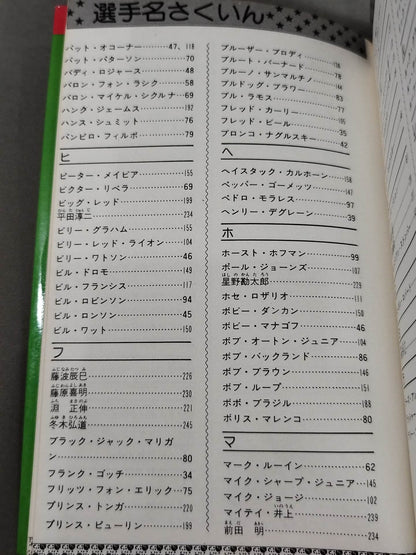 選手名さくいん
パット・オコーナー 47、118
パット・パターソン 70
バディ・ロジャース 48
バロン・フォン・ラシク 58
バロン・マイケル・シクルナ 69
ハンク・ジェームス 192
ハンス・シュミット 76
バンピロ・フィルポ 79
ヒ
ピーター・メイビア 155
ビクター・リベラ 69
ビッグ・レッド 199
平田淳二 234
ビリー・グラハム 155
ビリー・レッド・ライオン 104
ビリー・ワトソン 46
ビル・ドロモ 149
ビル・フランシス 117
ビル・ロビンソン 94
ビル・ロンソン 45
ビル・ワット 150
フ
藤波辰巳 226
藤原喜明 230
淵正伸 221
冬木弘道 245
ブラック・ジャック・マリガ
ン 80
フランク・ゴッチ 34
フリッツ・フォン・エリック 75
プリンス・トンガ 220
プリンス・ピューリン 199
ブルーザー・ブロディ 118
ブルート・バーナード 78
ブルーノ・サンマルチノ 144
ブルドッグ・ブラワー 83
ブル・ラモス 77
フレッド・カーリー
フレッド・ビール 35
ブロンコ・ナグルスキー 42
ヘ
ヘイスタック・カルホーン 158
ペッパー・ゴーメッツ 149
ペドロ・モラレス 97
ヘンリー・デグレーン 39
ホ
ホースト・ホフマン 99
ポール・ジョーンズ
星野勘太郎 229
ホセ・ロザリオ 111
ボビー・ダンカン
ボビー・マナゴフ 46
ボブ・オートン・ジュニア 104
ボブ・バックランド 86
ボブ・ブラウン 146
ボブ・ループ 151
ボボ・ブラジル
ボリス・マレンコ 80
マ
マーク・ルーイン 62
マイク・シャープ・ジュニア 145
マイク・ジョージ
マイテイ・井上 239
前田明 234